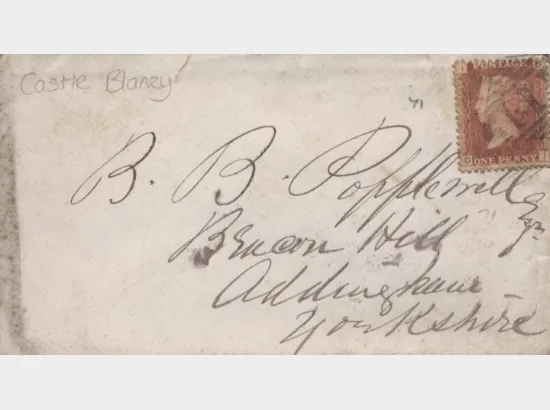 Castle Blaney
POSTAGE
ONE PENNY
B. B. Popplewell
Esqr
Beacon Hill
Addingham
Yorkshire